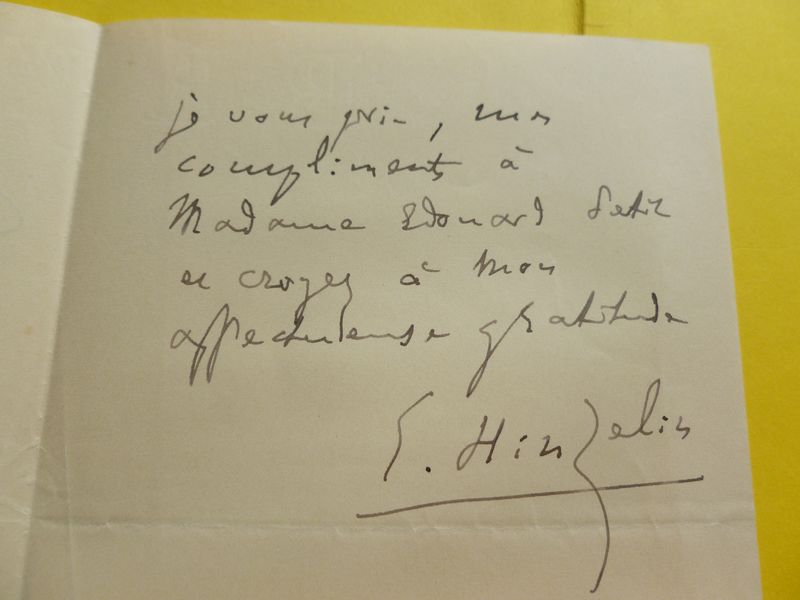 je vous prie, mes
compliments à
Madame Edouard Petit
et croyez à mon
affectueuse gratitude
E. Hinzelin